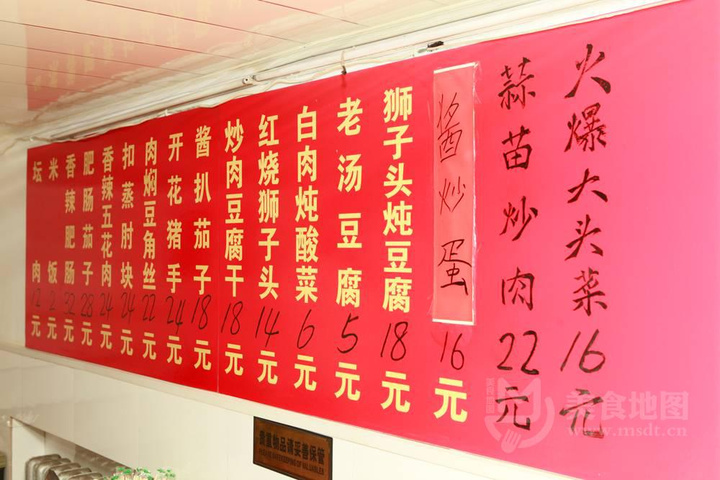 火爆大头菜16元
蒜苗炒肉22元
酱炒蛋16元
狮子头炖豆腐18元
老汤豆腐5元
白肉炖酸菜6元
红烧狮子头14元
炒肉豆腐干18元
酱扒茄子18元
开花猪手24元
肉焖豆角丝22元
扣蒸肘块24元
香辣五花肉24元
肥肠茄子28元
香辣肥肠32元
米饭2元
坛肉12元
贵重物品请妥善保管
美食地图
www.msdt.cn